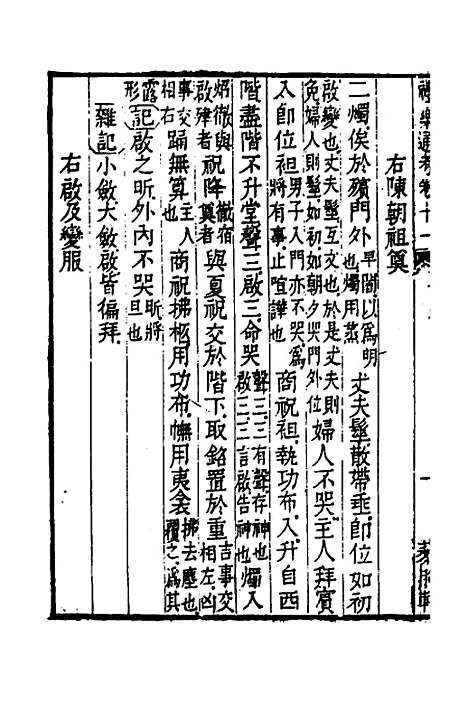 禮樂通考卷十一
右陳朝祖奠
二燭俟於殯門外早闇以為明也燭用蒸丈夫髽散帶垂即位如初
啟變也丈夫髽互文也於是丈夫則免婦人則髽如初如朝夕哭門外位婦人不哭主人拜賓
入即位袒男子入門亦不哭為將有事止喧譁也商祝袒執功布入升自西
階盡階不升堂聲三啟三命哭聲三三有聲存神也啟三三言啟告神也燭入
炤徹與啟殯者祝降徹宿奠者與夏祝交於階下取銘置於重吉事交相左凶
事交相右踊無算主人也商祝拂柩用功布幠用夷衾拂去塵也覆之為其
形露記啟之昕外內不哭昕將旦也
雜記小斂大斂啟皆偏拜
右啟及變服